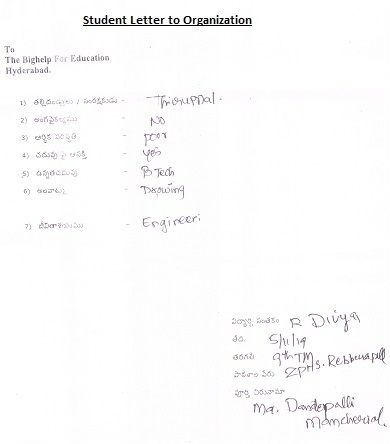 Student Letter to Organization
To
The Bighelp For Education
Hyderabad.
1) తల్లిదండ్రులు / సంరక్షకుడు - Thirupathi.
2) అంగవైకల్యము - No
3) ఆర్థిక పరిస్థితి - poor
4) చదువు పై ఆసక్తి - yes
5) ఉన్నతచదువు - B Tech
6) అలవాట్లు - Drowing
7) జీవితాశయము - Engineeri
విద్యార్థి సంతకం R Divya
తేది. 5/11/19
తరగతి 9th TM
పాఠశాల పేరు ZPHS.
పూర్తి చిరునామా
Ma. Dandepalli
Mancherial.